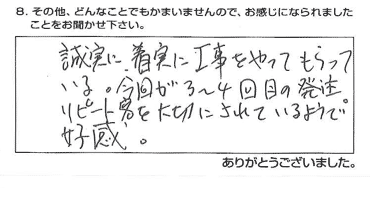 8. その他、どんなことでもかまいませんので、お感じになられました
ことをお聞かせ下さい。
誠実に、着実に工事をやってもらって
いる。今回が3〜4回目の発注。
リピート客を大切にされているようで
好感。
ありがとうございました。